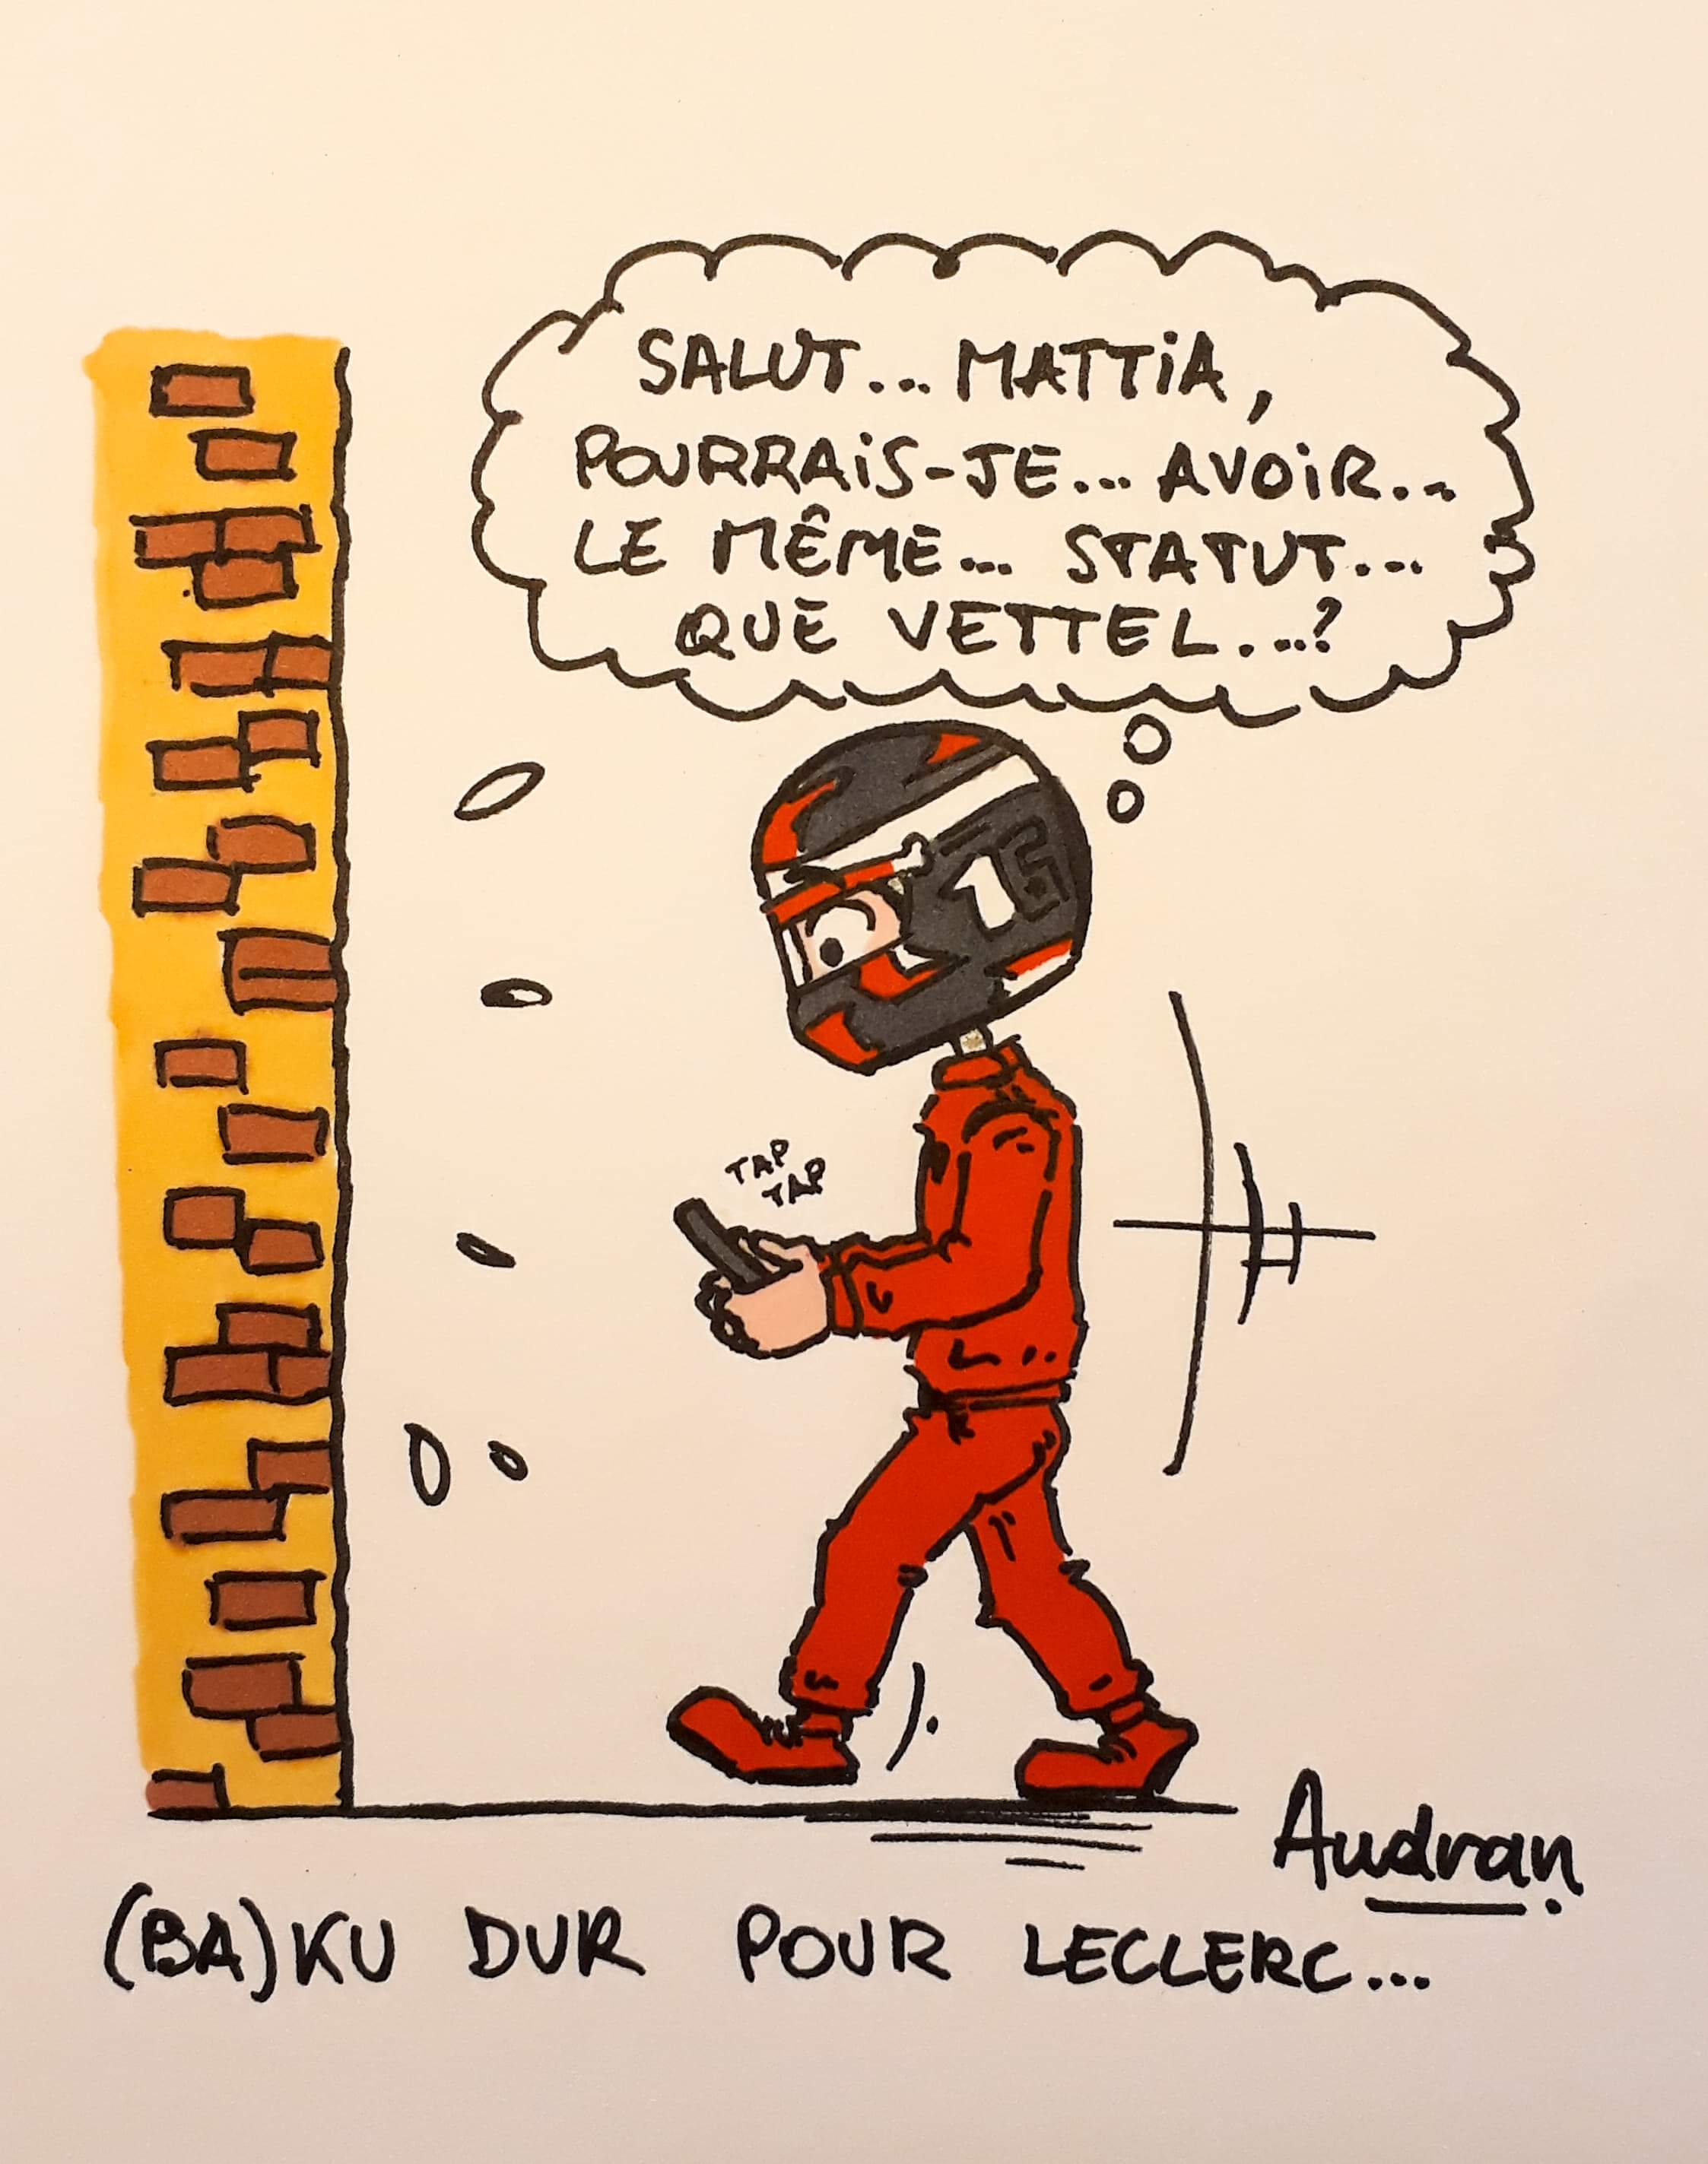 SALUT... MATTIA,
POURRAIS-JE... AVOIR...
LE MÊME... STATUT...
QUE VETTEL...?
TAP
TAP
Audran
(BA)KU DUR POUR LECLERC...